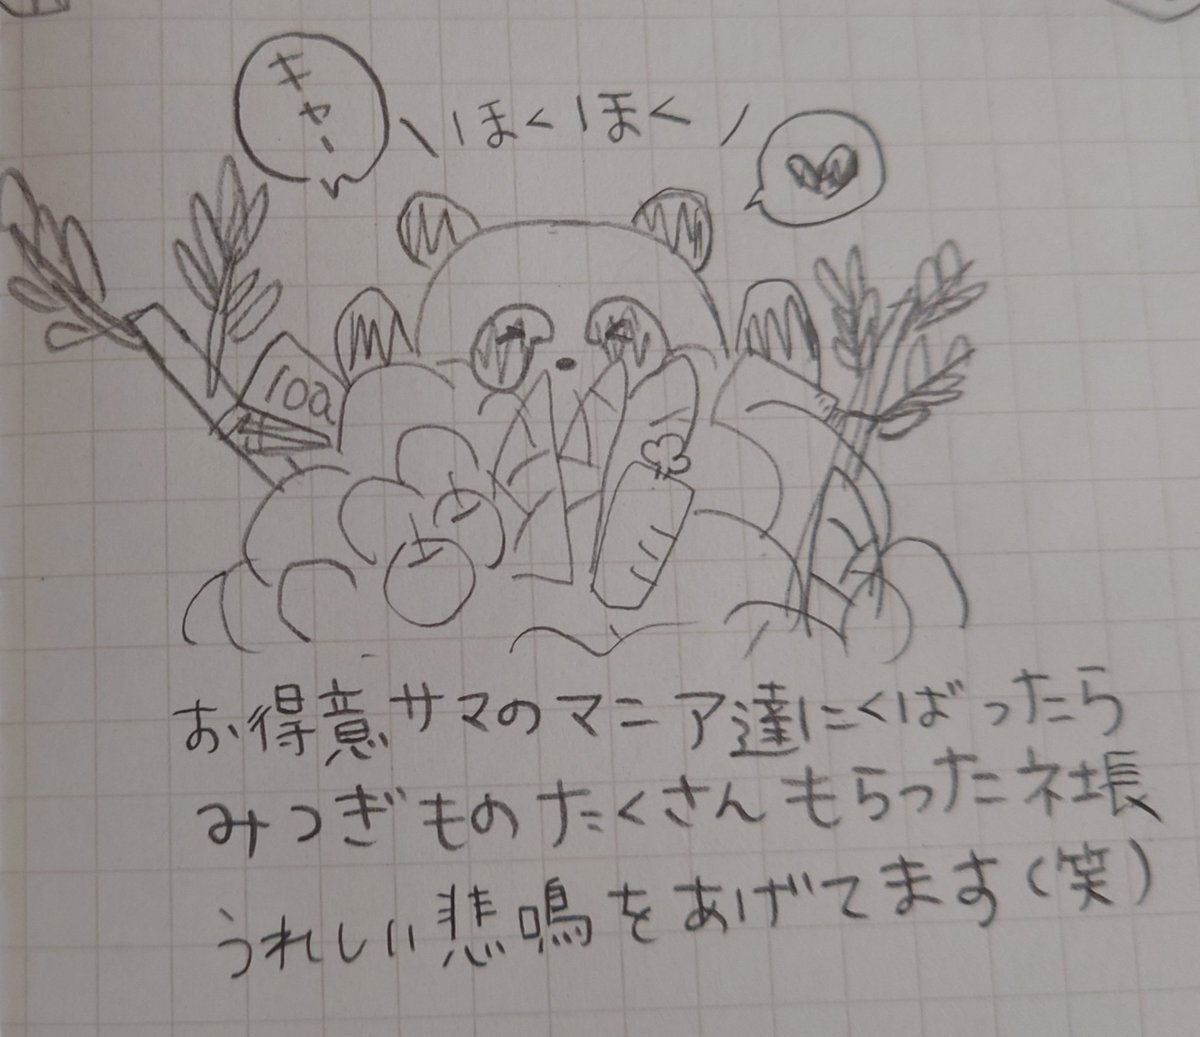 キャー
ほくほく
100
お得意サマのマニア達にくばったら
みつぎものたくさんもらった社長
うれしい悲鳴をあげてます(笑)